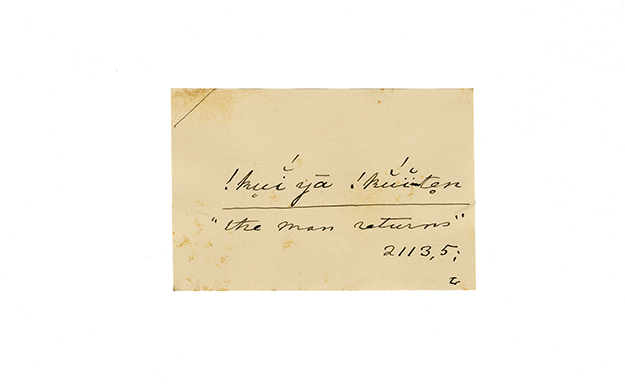 !kụ̆í yā !kŭ́ĭ-tẹn
"the man returns"
2113,5;